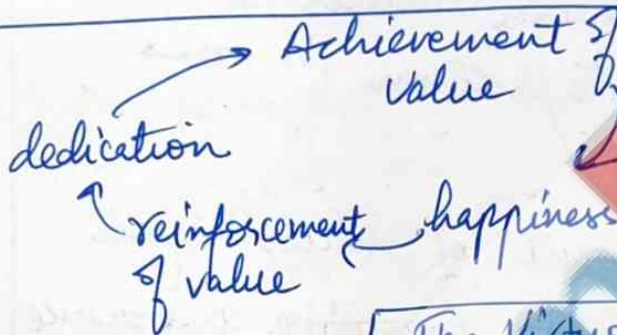 Achievement of
value
dedication
reinforcement
of value
happiness
The